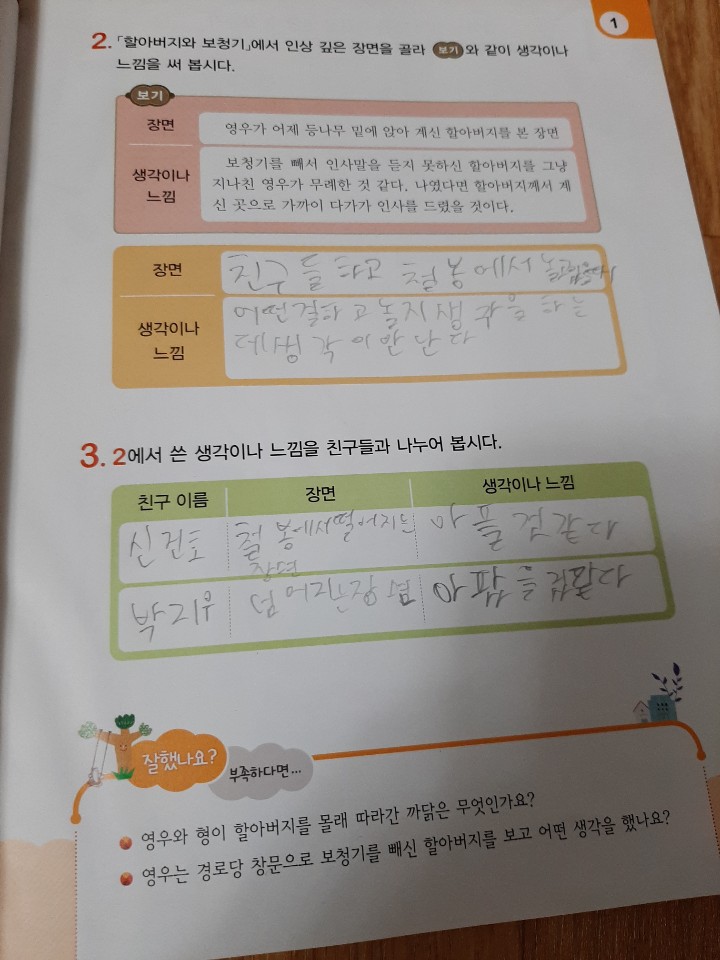 1
2. 「할아버지와 보청기」에서 인상 깊은 장면을 골라 보기 와 같이 생각이나
느낌을 써 봅시다.
보기
장면
영우가 어제 등나무 밑에 앉아 계신 할아버지를 본 장면
생각이나
느낌
보청기를 빼서 인사말을 듣지 못하신 할아버지를 그냥
지나친 영우가 무례한 것 같다. 나였다면 할아버지께서 계
신 곳으로 가까이 다가가 인사를 드렸을 것이다.
장면
친구들하고 철봉에서
생각이나
느낌
어떤걸하고 놀지 생각을 하는
데 생각이 안 난다
3. 2에서 쓴 생각이나 느낌을 친구들과 나누어 봅시다.
친구 이름 장면 생각이나 느낌
신건호 철봉에서떨어지는 아플 것 같다
장면
박지우 넘어지는장면
잘했나요?
부족하다면...
영우와 형이 할아버지를 몰래 따라간 까닭은 무엇인가요?
영우는 경로당 창문으로 보청기를 빼신 할아버지를 보고 어떤 생각을 했나요?